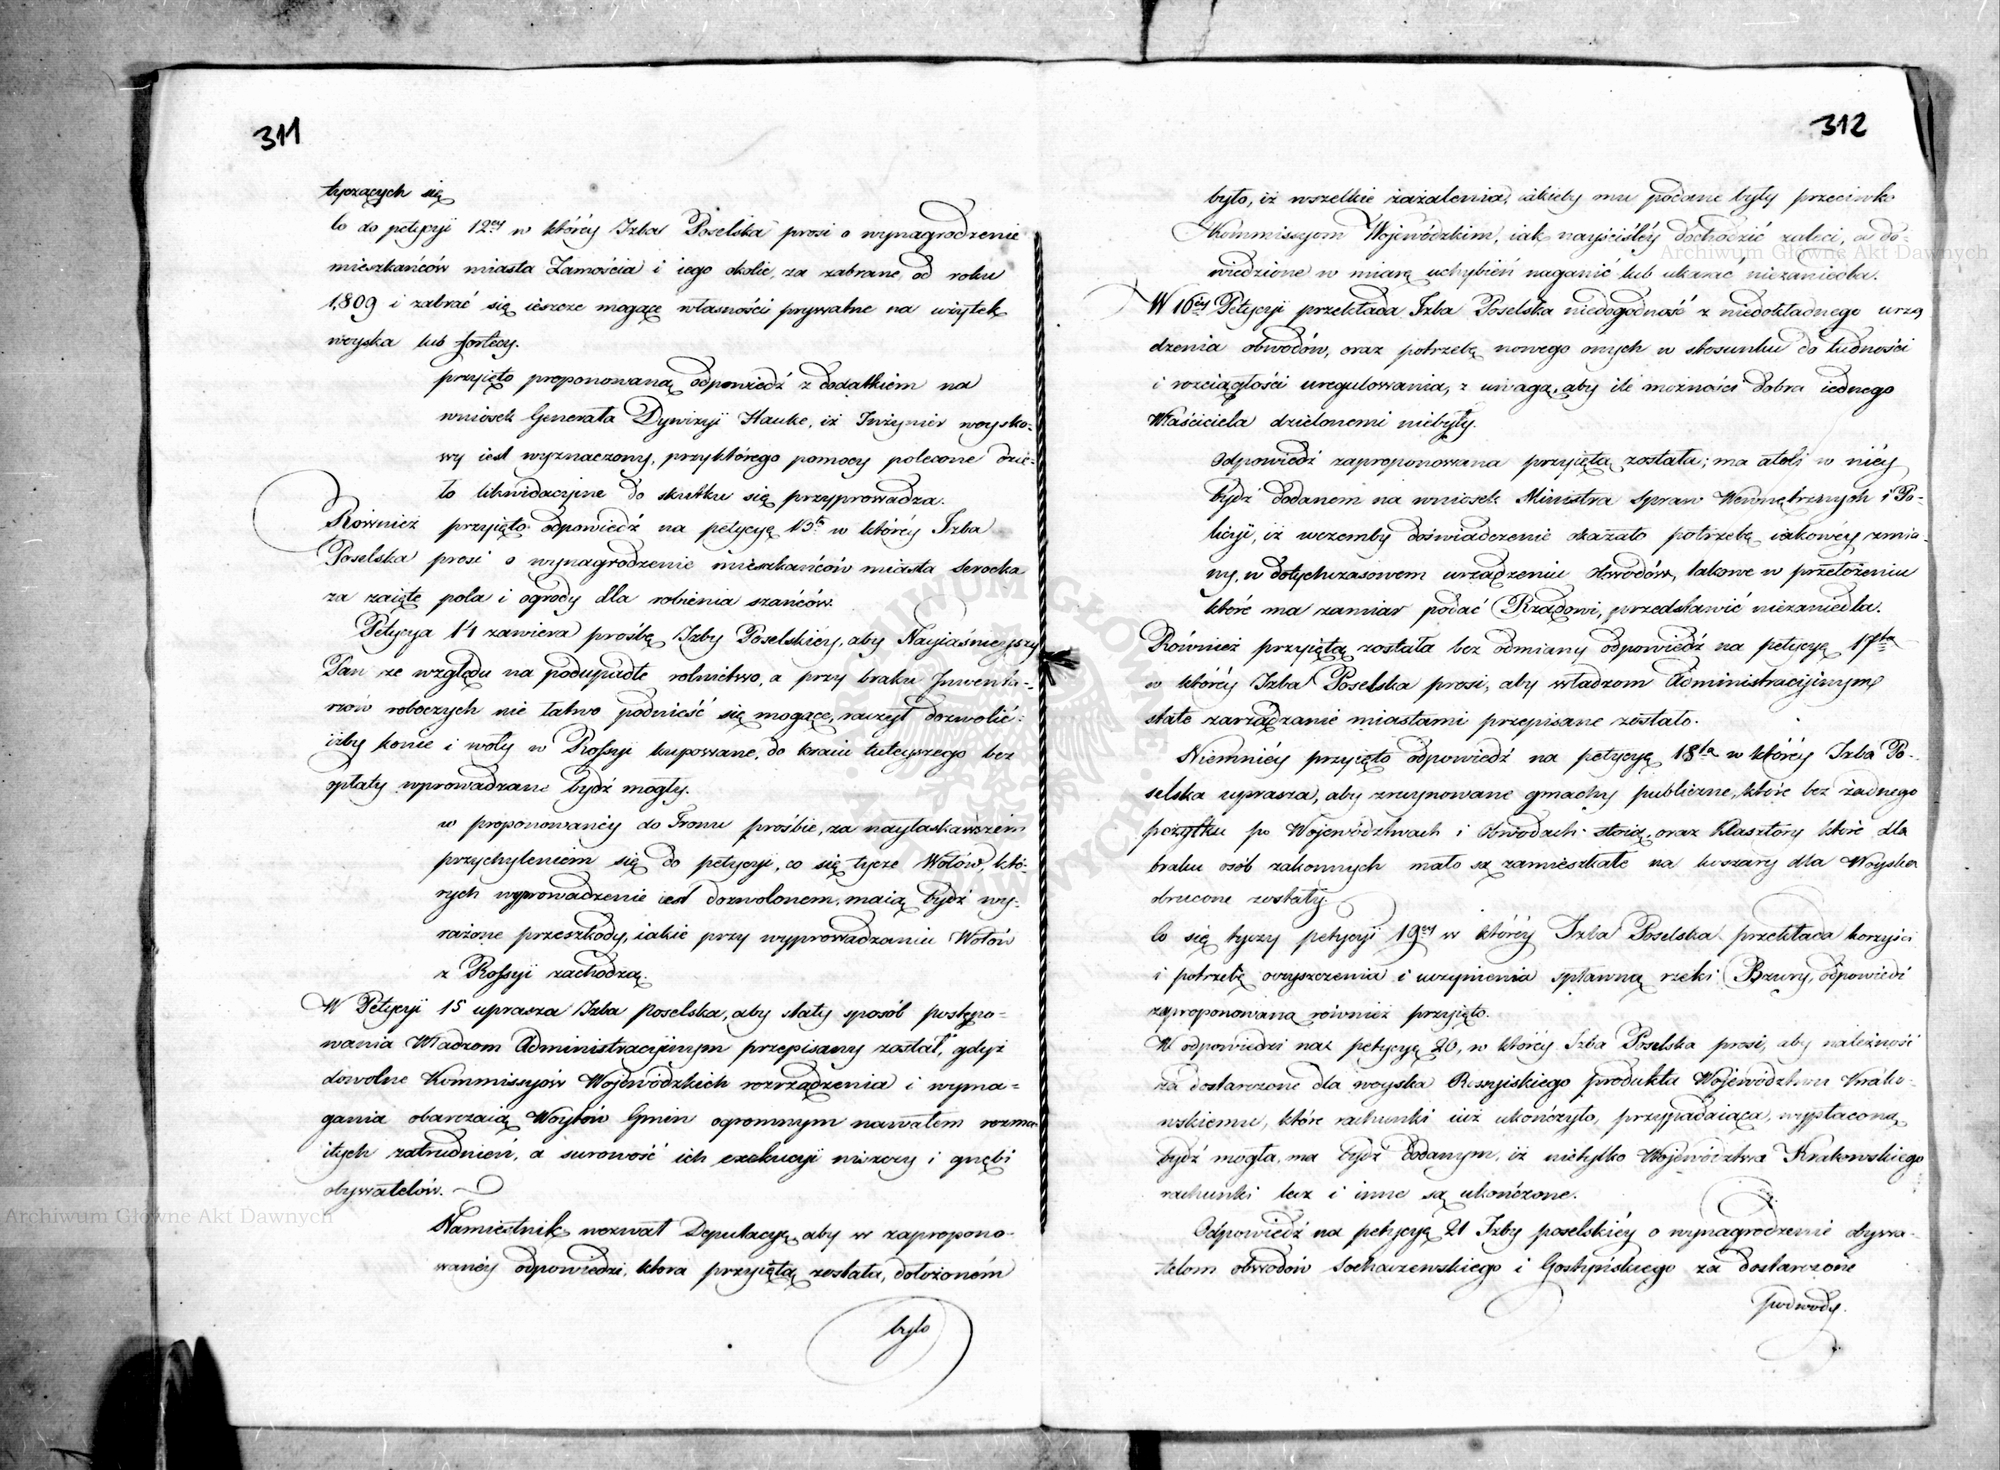 311
tyczących się
Co do petycyi 12ey w któréy Izba Poselska prosi o wynagrodzenie
mieszkańców miasta Zamościa i iego okolic, za zabrane, od roku
1,809 i zabrać się ieszcze mogące własności prywatne na użytek
woyska lub fortecy.
przyięto proponowaną odpowiedź z dodatkiem na
wniosek Generała Dywizyi Hauke, iż Inżynier woysko-
wy iest wyznaczony, przy którego pomocy polecone dzie-
ło likwidacyine do skutku się przyprowadza.
Również przyięto odpowiedź na petycyę 13tą w któréy Izba
Poselska prosi o wynagrodzenie mieszkańców miasta Serocka
za zaięte pola i ogrody dla robienia szańców.
Petycya 14 zawiera prośbę Izby Poselskiéy, aby Nayiaśnieyszy
Pan ze względu na podupadłe rolnictwo, a przy braku Inwenta-
rzów roboczych nie łatwo podnieść się mogące, raczył dozwolić:
iżby konie i woły w Rossyi kupowane, do kraiu tuteyszego bez
opłaty wprowadzane bydź mogły.
w proponowanéy do Tronu prośbie, za nayłaskawszém
przychyleniem się do petycyi, co się tycze Wołów, któ-
rych wyprowadzenie iest dozwolonem, maią bydź wy-
rażone przeszkody, iakie przy wyprowadzaniu Wołów
z Rossyi zachodzą.
W Petycyi 15 uprasza Izba poselska, aby stały sposób postępo-
wania Władzom Administracyinym przepisany został, gdyż
dowolne Kommissyów Woiewódzkich rozrządzenia i wyma-
gania obarczaią Woytów Gmin ogromnym nawałem rozma
itych zatrudnień, a surowość ich exekucyi niszczy i gnębi
obywatelów.
Namiestnik wezwał Deputacyę, aby w zapropono-
wanéy odpowiedzi, która przyiętą została, dołożoném
było
312
było, iż wszelkie zażalenia, iakieby mu podane były przeciwko
Kommissyom Woiewódzkim, iak nayściśléy dochodzić zaleci, a do-
wiedzione w miarę uchybień naganić lub ukarać niezaniecha.
W 16éy Petycyi przekłada Izba Poselska niedogodność z niedokładnego urzą
dzenia obwodów, oraz potrzebę nowego onych w stosunku do ludności
i rozciągłości uregulowania, z uwagą, aby ile możności dobra iednego
Właściciela dzielonemi niebyły.
Odpowiedź zaproponowana przyiętą została; ma atoli w niéy
bydź dodanem na wniosek Ministra Spraw Wewnętrznych i Po-
licyi, iż wrazemby doświadczenie okazało potrzebę iakowéy zmia-
ny, w dotychczasowem urządzeniu Obwodów, takowe w przełożeniu
które ma zamiar podać Rządowi, przedstawić niezaniedba.
Również przyiętą została bez odmiany odpowiedź na petycyę 17tą
w któréy Izba Poselska prosi, aby władzom Administracyinym
stałe zarządzanie miastami przepisane zostało.
Niemniéy przyięto odpowiedź na petycyę 18tą w któréy Izba Po-
selska uprasza, aby zruynowane gmachy publiczne, które bez żadnego
pożytku po Woiewództwach i Obwodach stoią, oraz klasztory które dla
braku osób zakonnych mało są zamieszkałe na koszary dla Woyska
obrucone zostały.
Co się tyczy petycyi 19ey w któréy Izba Poselska przekłada korzyści
i potrzebę oczyszczenia i uczynienia spławną rzeki Bzury, odpowiedź
zaproponowaną również przyięto.
W odpowiedzi na petycyę 20, w któréy Izba Poselska prosi, aby należność
za dostarczone dla woyska Rossyiskiego produkta Woiewództwu Krako-
wskiemu, które rachunki iuż ukończyło, przypadaiąca, wypłaconą
bydź mogła, ma bydź dodanym, iż nietylko Woiewództwa Krakowskiego
rachunki lecz i inne są ukończone.
Odpowiedź na petycyę 21 Izby poselskiéy o wynagrodzenie obywa-
telom obwodów Sochaczewskiego i Gostyńskiego za dostarczone
podwody.
Archiwum Główne Akt Dawnych
Archiwum Główne Akt Dawnych